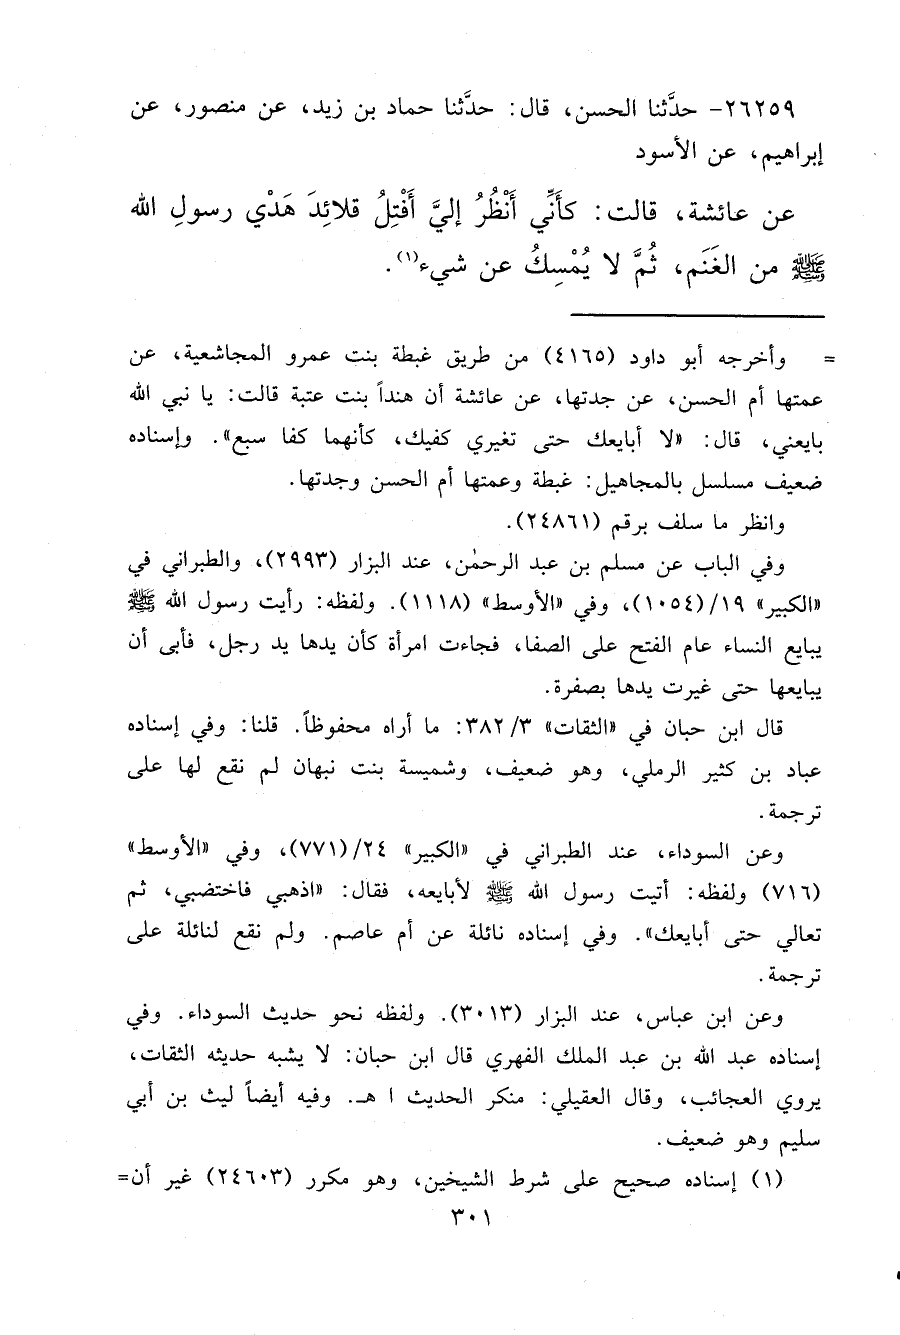 ٢٦٢٥٩- حدَّثنا الحسن، قال: حدَّثنا حماد بن زيد، عن منصور، عن
إبراهيم، عن الأسود
عن عائشة، قالت: كأَنِّي أَنْظُرُ إليَّ أَفْتِلُ قلائِدَ هَدْي رسولِ الله
ﷺ من الغَنَم، ثُمَّ لا يُمْسِكُ عن شيء(١).
= وأخرجه أبو داود (٤١٦٥) من طريق غبطة بنت عمرو المجاشعية، عن
عمتها أم الحسن، عن جدتها، عن عائشة أن هنداً بنت عتبة قالت: يا نبي الله
بايعني، قال: «لا أبايعك حتى تغيري كفيك، كأنهما كفا سبع». وإسناده
ضعيف مسلسل بالمجاهيل: غبطة وعمتها أم الحسن وجدتها.
وانظر ما سلف برقم (٢٤٨٦١).
وفي الباب عن مسلم بن عبد الرحمٰن، عند البزار (٢٩٩٣)، والطبراني في
«الكبير» ١٩/(١٠٥٤)، وفي «الأوسط» (١١١٨). ولفظه: رأيت رسول الله ﷺ
يبايع النساء عام الفتح على الصفا، فجاءت امرأة كأن يدها يد رجل، فأبى أن
يبايعها حتى غيرت يدها بصفرة.
قال ابن حبان في «الثقات» ٣/ ٣٨٢: ما أراه محفوظاً. قلنا: وفي إسناده
عباد بن كثير الرملي، وهو ضعيف، وشميسة بنت نبهان لم نقع لها على
ترجمة.
وعن السوداء، عند الطبراني في «الكبير» ٢٤/(٧٧١)، وفي «الأوسط»
(٧١٦) ولفظه: أتيت رسول الله ﷺ لأبايعه، فقال: «اذهبي فاختضبي، ثم
تعالي حتى أبايعك». وفي إسناده نائلة عن أم عاصم. ولم نقع لنائلة على
ترجمة.
وعن ابن عباس، عند البزار (٣٠١٣). ولفظه نحو حديث السوداء. وفي
إسناده عبد الله بن عبد الملك الفهري قال ابن حبان: لا يشبه حديثه الثقات،
يروي العجائب، وقال العقيلي: منكر الحديث ا هـ. وفيه أيضاً ليث بن أبي
سليم وهو ضعيف.
(١) إسناده صحيح على شرط الشيخين، وهو مكرر (٢٤٦٠٣) غير أن=
٣٠١